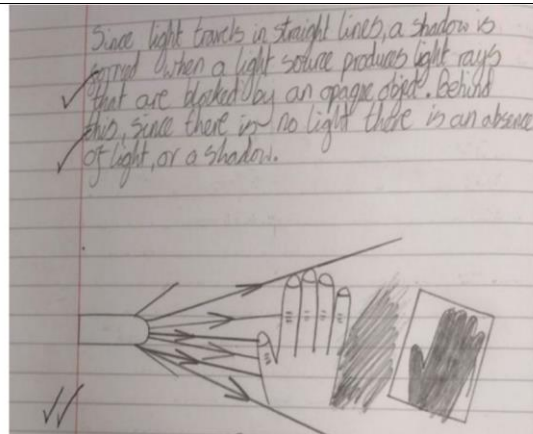 Since light travels in straight lines, a shadow is
when a light source produces light rays
that are blocked by an opaque object. Behind
this, since there is no light there is an absence
of light, or a shadow.